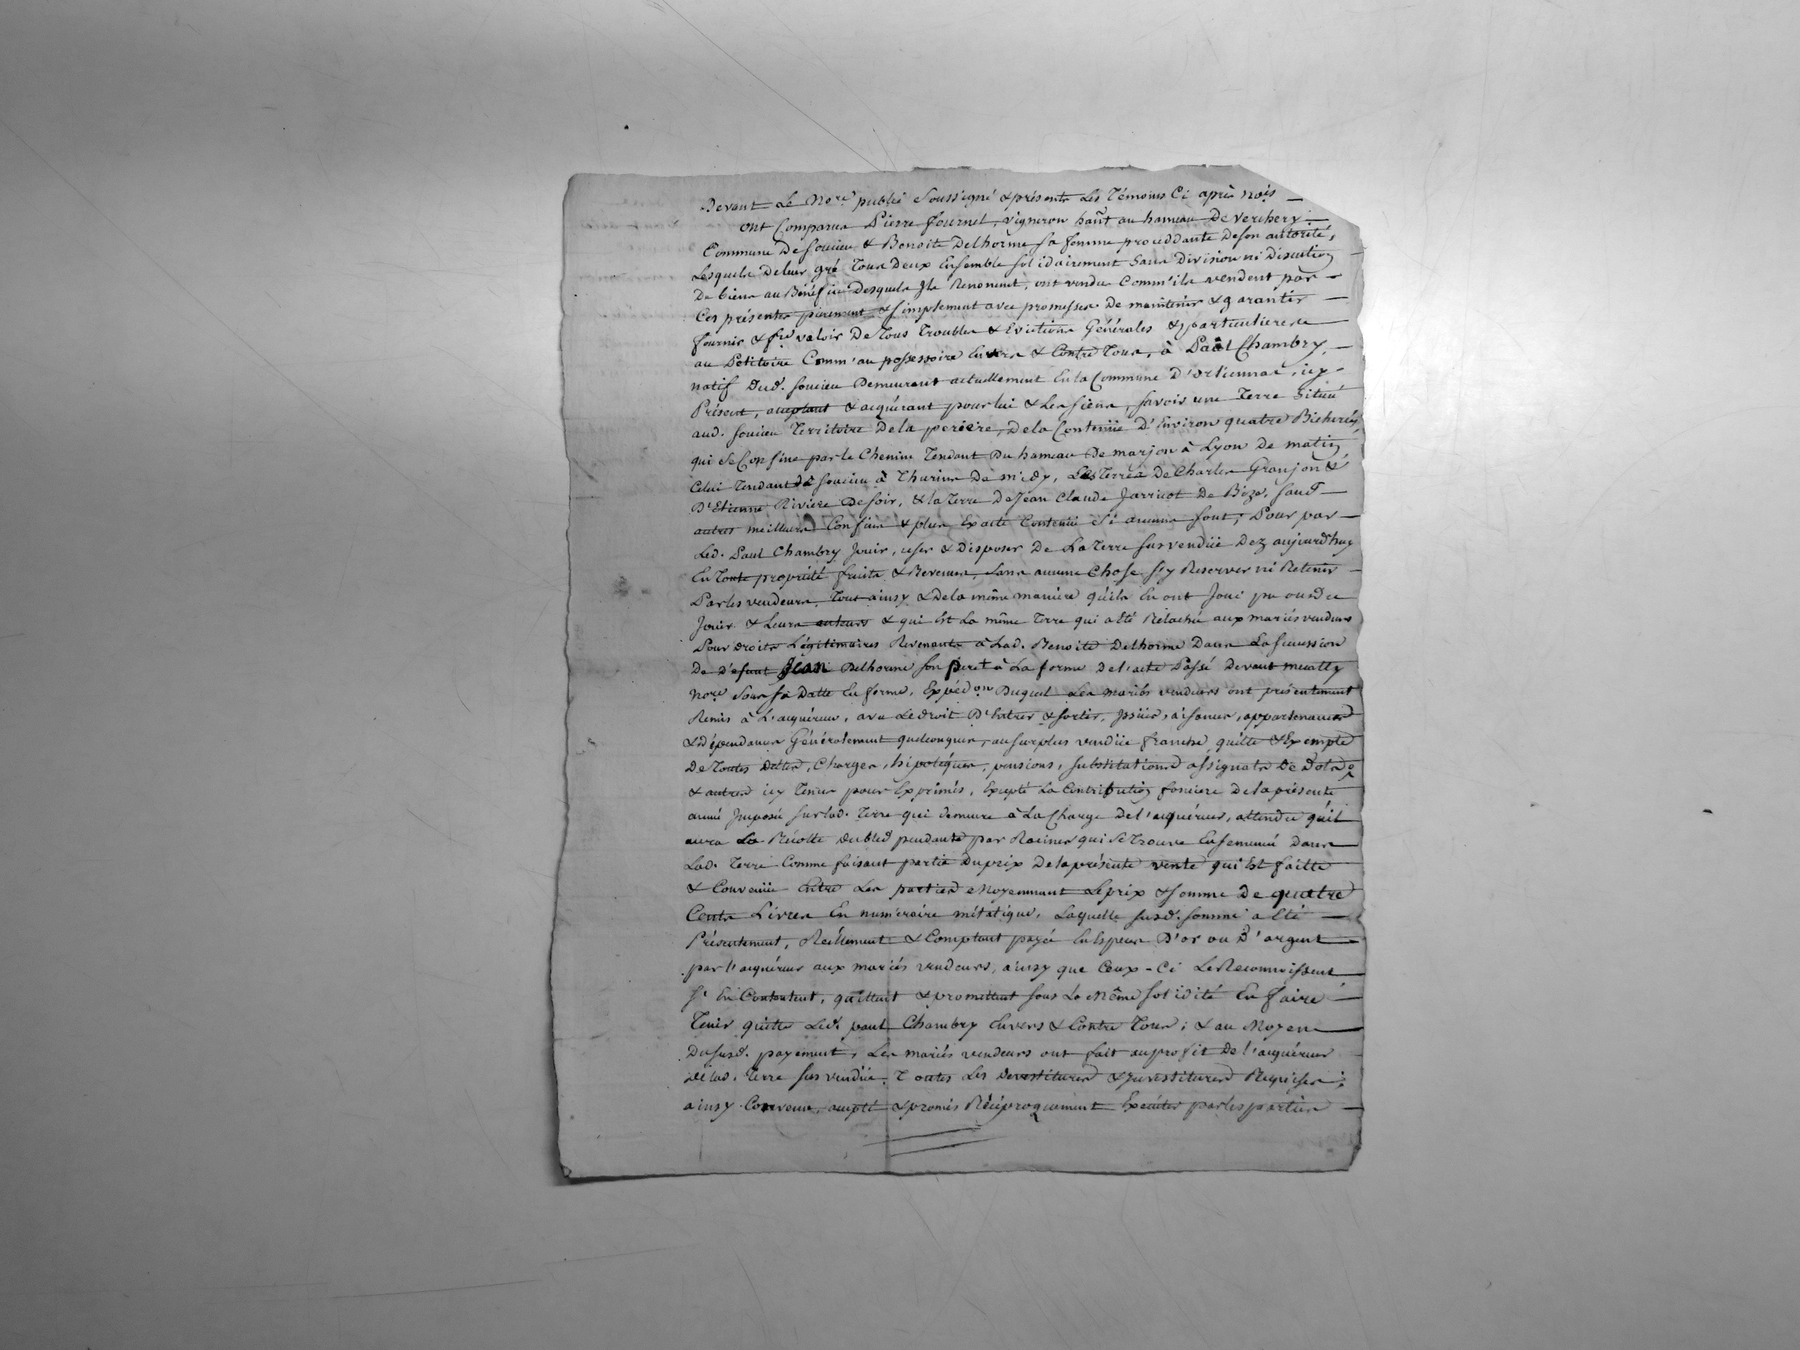 Devant Le No.re public Soussigné & présents Les Témoins Ci après No.és
ont Comparus Pierre fournel, vigneron hañt au hameau De Verchery
Commune De soucieu & Benoite Delhorme sa femme procédante De son autorité,
Lesquels de leur gré Tous Deux Ensemble solidairement Sans Division ni Discution
De biens au Bénéfice Desquels Ils Renoncent, ont vendu Comm'ils vendent par
Ces présentes purement & simplement avec promesses De maintenir & garantir
fournir & f.re valoir De Tous Troubles & Evictions Générales & particulieres
au Pétitoire Comm'au possessoire Envers & Contre Tous, à Paul Chambry,
natif dud. soucieu Demeurant actuellement En la Commune D'orliennas, icy
Présent, acceptant & acquérant pour lui & Les siens, savoir une Terre Située
aud. soucieu Territoire De la periere, De la Contenüe D'Environ quatre Bicherées
qui Se Confine par le Chemin Tendant Du hameau De marjon à Lyon De matin
Celui Tendant de soucieu à Thurins De midy, Les Terres De Charles Granjon &
D'Etienne Riviere De soir, & la Terre De Jean Claude Jarricot De Bize, sauf
autres meilleurs Confins & plus Exacte Contenüe Si aucuns sont; Pour par
Led. Paul Chambry Jouir, user & Disposer De La Terre sus vendüe Dez aujourd'huy
En Toute propriété fruits & Revenus, sans aucune Chose s'y Reserver ni Retenir
Par les vendeurs, Tout ainsy & De la même maniere qu'ils En ont Joui pu ou du
Jouir & Leurs auteurs & qui Est La même Terre qui a Eté Relachée aux mariés vendeurs
Pour droits Légitimaires Revenants à Lad. Benoite Delhorme Dans La succession
De Défunt Jean Delhorme son pere à La forme De l'acte Passé Devant
No.re Sous sa Datte En forme, Expéd.on Duquel Les mariés vendeurs ont présentement
Remis à L'acquéreur, avec Le droit D'Entrer & sortir, Issües, aisances, appartenances
& dépendances Généralement quelconques, au surplus vendüe franche, quitte & Exempte
De Toutes Dettes, Charges, hipotèques, pensions, substitutions assignats De Dots
& autres icy Tenus pour Exprimés, Excepté La Contribution fonciere De la présente
année Imposée sur lad. Terre qui demeure à La Charge De l'acquéreur, attendu qu'il
aura La Récolte du bled pendante par Racines qui Se Trouve Ensemencé dans
Lad. Terre Comme faisant partie Du prix De la présente vente qui Est faitte
& Convenüe Entre Les parties Moyennant Le prix & somme De quatre
Cents Livres En numéraire métalique, Laquelle susd. somme a Eté
Présentement, Reellement & Comptant payée En Especes D'or ou D'argent
par l'acquéreur aux mariés vendeurs, ainsy que Ceux-Ci Le Reconnoissent
s'En Contentent, quittent & promettent sous La Même solidité En faire
Tenir quitte Led. paul Chambry Envers & Contre Tous; & au Moyen
Du susd. payement, Les mariés vendeurs ont fait au profit De l'acquéreur
De lad. Terre sus vendüe, Toutes Les Devestitures & Investitures Requises;
ainsy Convenu, accepté & promis Réciproquement Executer par les parties